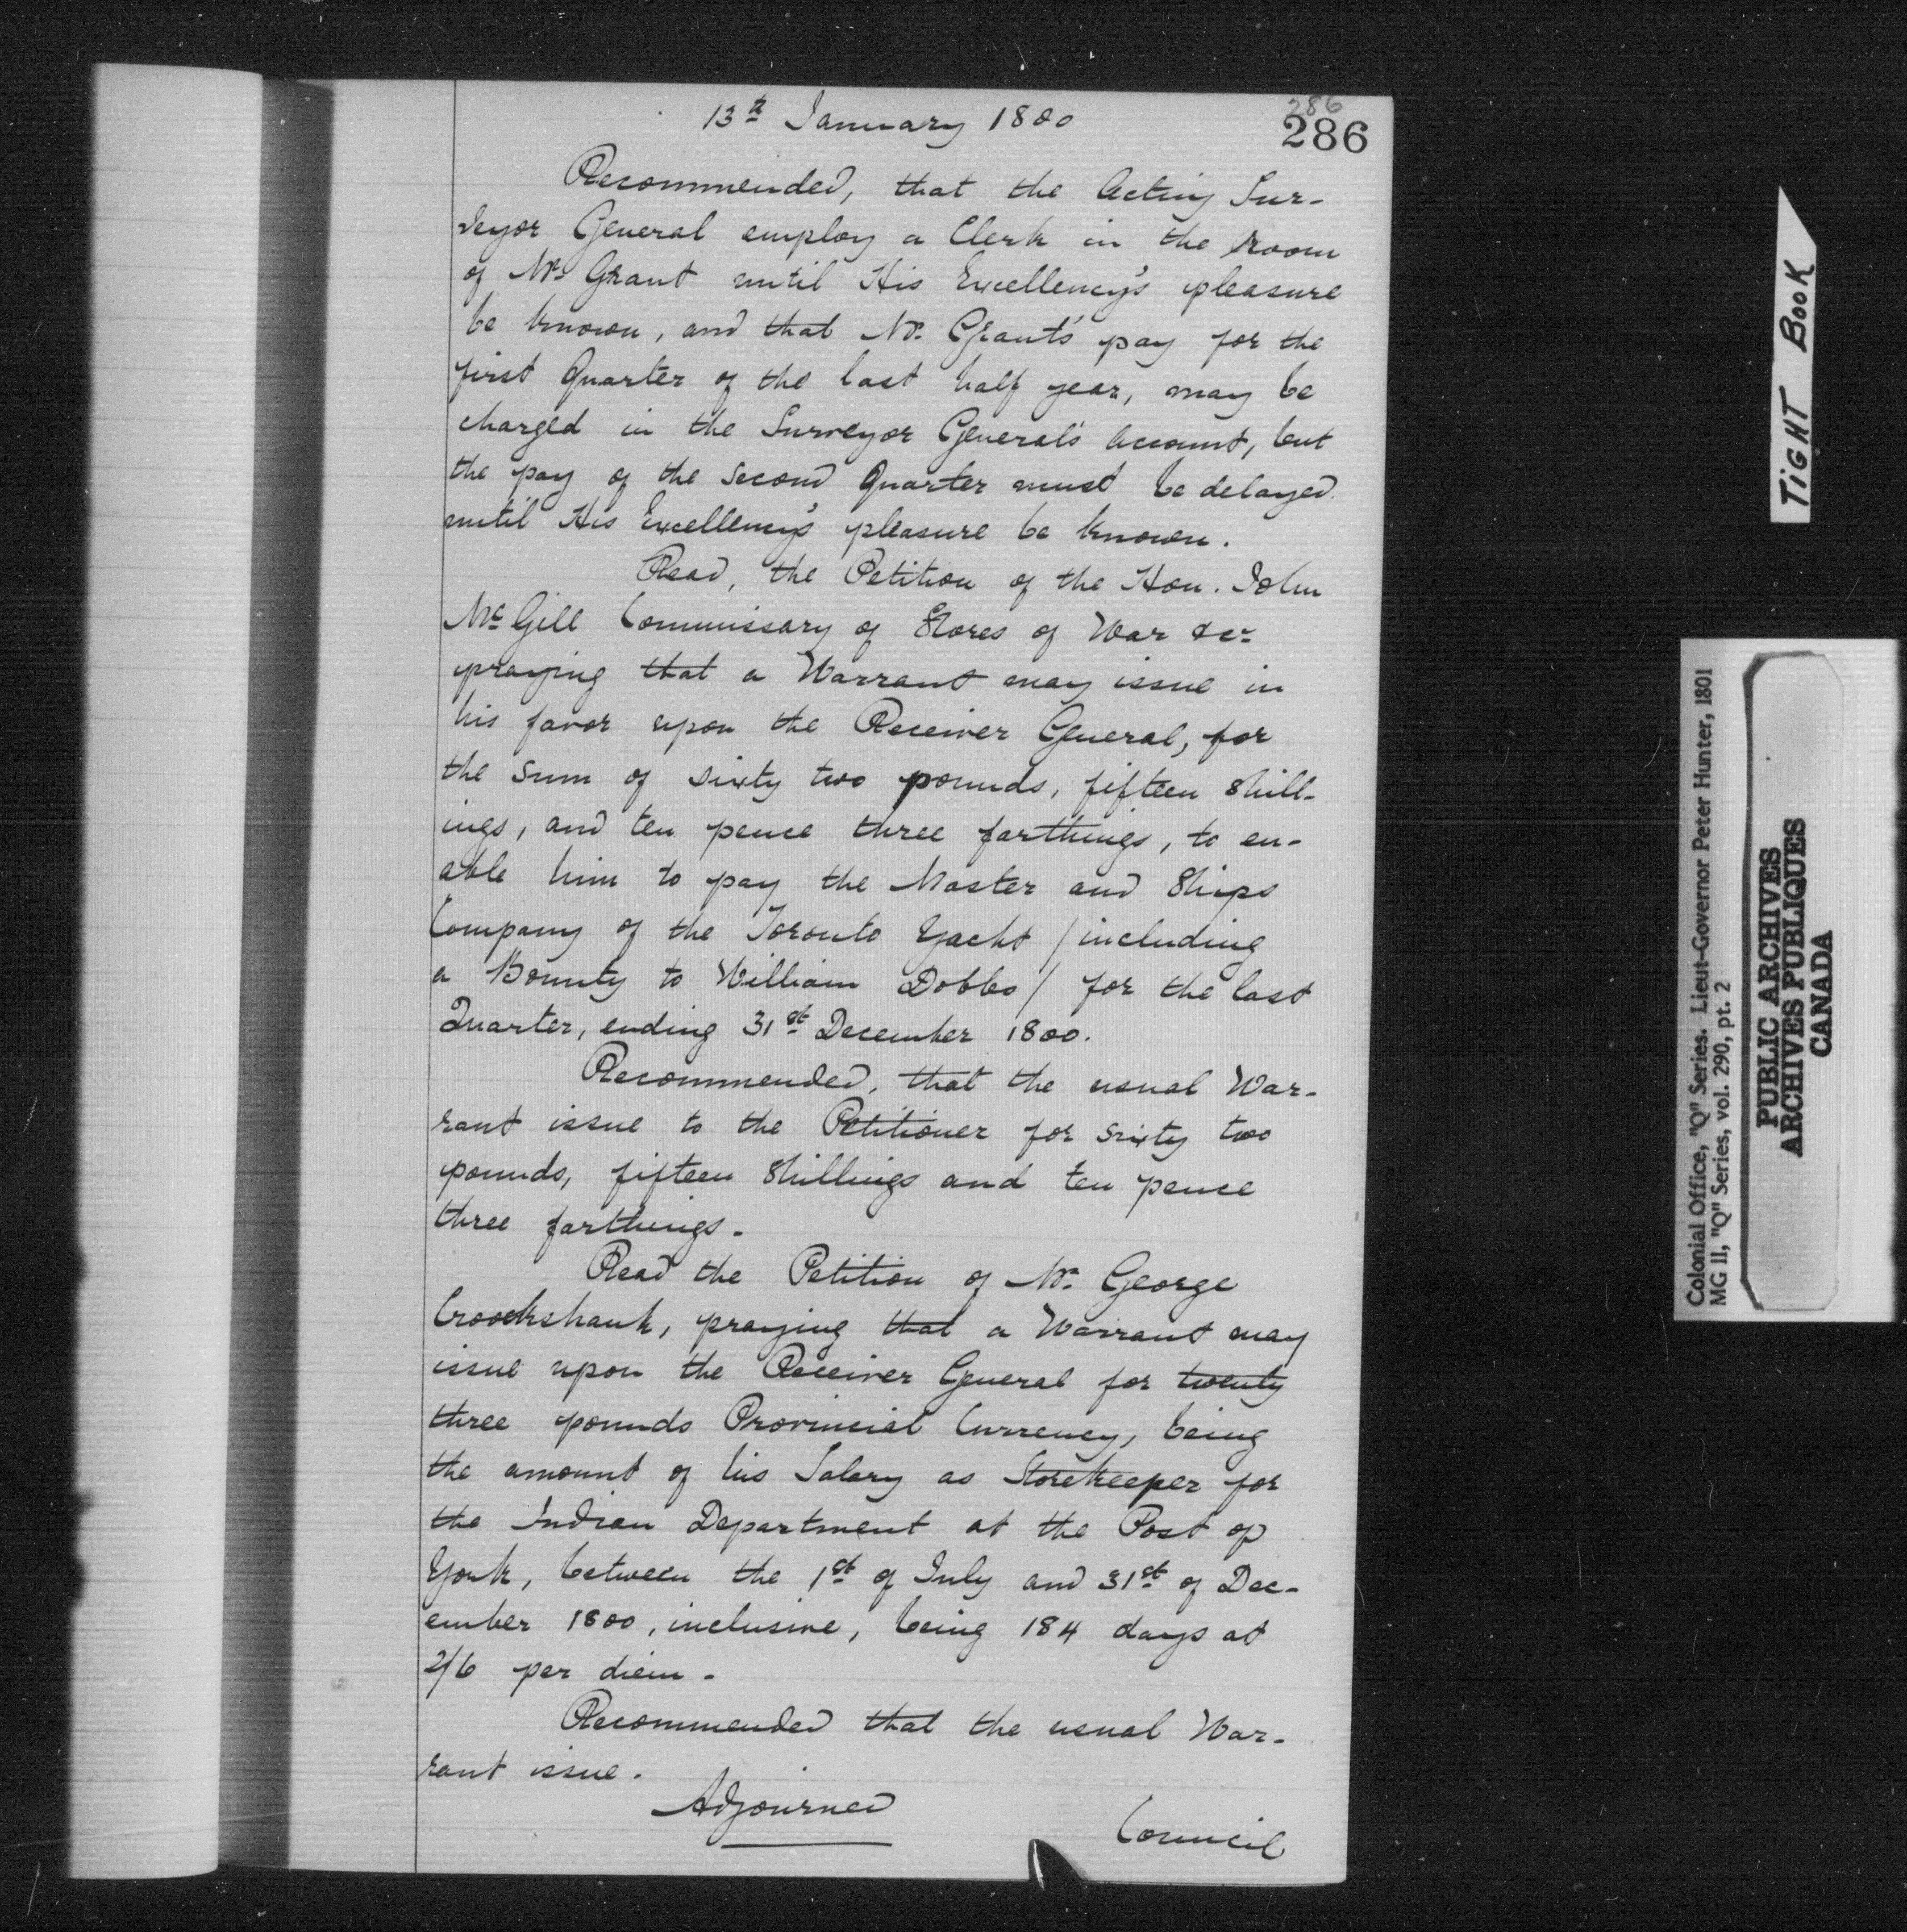 13th January 1800
286
286
Recommended, that the Acting Sur-
veyor General employ a Clerk in the room
of Mr. Grant until His Excellency's pleasure
be known, and that Mr. Grant's pay for the
first Quarter of the last half year, may be
charged in the Surveyor General's Account, but
the pay of the Second Quarter must be delayed
until His Excellency's pleasure be known.
Read, the Petition of the Hon. John
McGill Commissary of Stores of War &c.
praying that a Warrant may issue in
his favor upon the Receiver General, for
the Sum of sixty two pounds, fifteen Shill-
ings, and ten pence three farthings, to en-
able him to pay the Master and Ships
Company of the Toronto Yacht / including
a Bounty to William Dobbs / for the last
Quarter, ending 31st December 1800.
Recommended, that the usual War-
rant issue to the Petitioner for sixty two
pounds, fifteen Shillings and ten pence
three farthings.
Read the Petition of Mr. George
Crookshank, praying that a Warrant may
issue upon the Receiver General for twenty
three pounds Provincial Currency, being
the amount of his Salary as Storekeeper for
the Indian Department at the Post of
York, between the 1st of July and 31st of Dec-
ember 1800, inclusive, being 184 days at
2/6 per diem.
Recommended that the usual War-
rant issue.
Adjourned
Council
TIGHT BOOK
Colonial Office, "Q" Series. Lieut-Governor Peter Hunter, 1801
MG 11, "Q" Series, vol. 290, pt. 2
PUBLIC ARCHIVES
ARCHIVES PUBLIQUES
CANADA